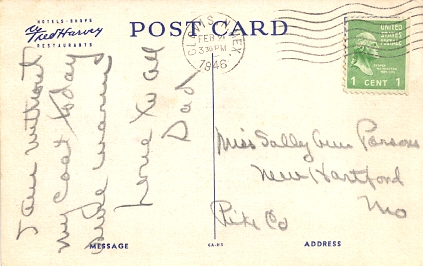 HOTELS · SHOPS
Fred Harvey
RESTAURANTS
POST CARD
CLOVIS N. MEX.
FEB
3 30 PM
1946
UNITED
STATES
1 CENT 1
I am without
my coat today
warm
Love to all
Dad
Miss Sally Ann Parsons
New Hartford
Pike Co
Mo
MESSAGE
ADDRESS